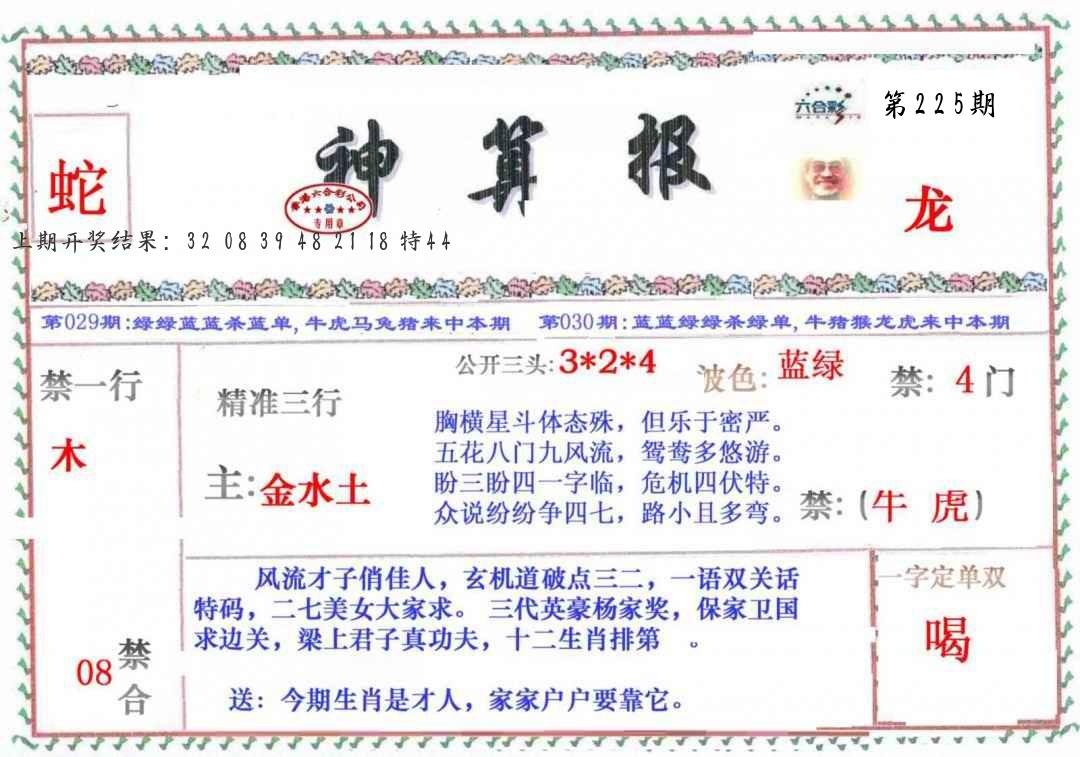 六合彩
第225期
神算报
香港六合彩公司
专用章
蛇
龙
上期开奖结果: 32 08 39 48 21 18 特44
第029期:绿绿蓝蓝杀蓝单,牛虎马兔猪来中本期
第030期:蓝蓝绿绿杀绿单,牛猪猴龙虎来中本期
禁一行
木
精准三行
主:金水土
公开三头:3*2*4
波色:蓝绿
禁:4门
胸横星斗体态殊，但乐于密严。
五花八门九风流，鸳鸯多悠游。
盼三盼四一字临，危机四伏特。
众说纷纷争四七，路小且多弯。
禁:(牛 虎)
08禁合
风流才子俏佳人，玄机道破点三二，一语双关话
特码，二七美女大家求。 三代英豪杨家奖，保家卫国
求边关，梁上君子真功夫，十二生肖排第 。
送：今期生肖是才人，家家户户要靠它。
一字定单双
喝